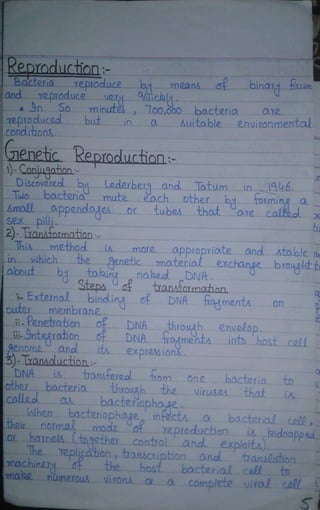 Reproduction:-
Bacteria reproduce by means of binary fission
and reproduce very quickly.
• In 50 minutes, 700,000 bacteria are
reproduced but in a suitable environmental
conditions.
Genetic Reproduction:-
1)- Conjugation:-
Discovered by Lederberg and Tatum in 1946.
Two bacteria mute each other by forming a
small appendages or tubes that are called
sex pilli.
2)- Transformation:-
This method is more appropriate and stable
in which the genetic material exchange brought
about by taking naked DNA.
Steps of transformation
i. External binding of DNA fragments on
outer membrane.
ii. Penetration of DNA through envelop.
iii- Integration of DNA fragments into host cell
genome and its expressions.
3)- Transduction:-
DNA is transfered from one bacteria to
other bacteria through the viruses that is
called as bacteriophage.
When bacteriophage infects a bacterial cell,
their normal mode of reproduction is kidnapped
or harness (together control and exploits).
The replication, transcription and translation
machinery of the host bacterial cell to
make numerous virons or a complete viral cell
5